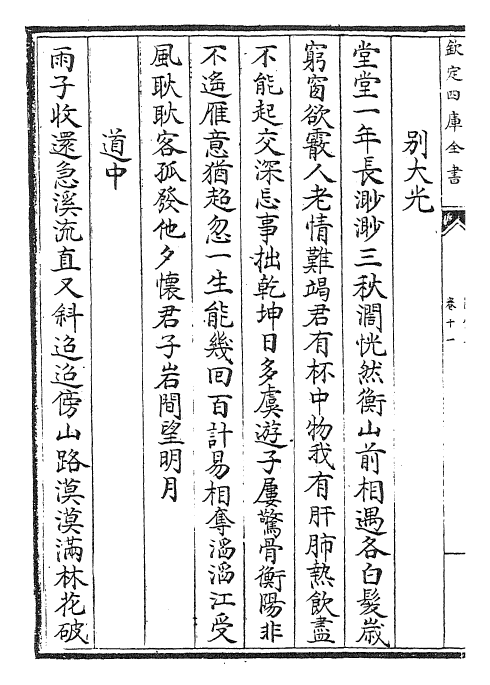 欽定四庫全書
卷十一
別大光
堂堂一年長渺渺三秋濶恍然衡山前相遇各白髮歳
窮窗欲霰人老情難竭君有杯中物我有肝肺熱飲盡
不能起交深忘事拙乾坤日多虞遊子屢驚骨衡陽非
不遙雁意猶超忽一生能幾回百計易相奪滔滔江受
風耿耿客孤發他夕懷君子岩間望明月
道中
雨子收還急溪流直又斜迢迢傍山路漠漠滿林花破